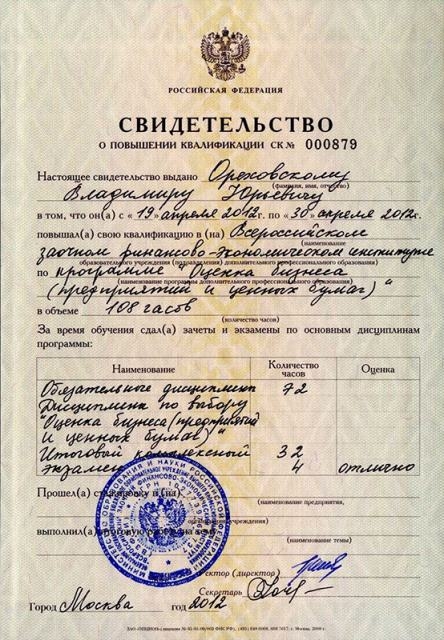 РОССИЙСКАЯ ФЕДЕРАЦИЯ
СВИДЕТЕЛЬСТВО
О ПОВЫШЕНИИ КВАЛИФИКАЦИИ СК № 000879
Настоящее свидетельство выдано Ореховскому
Владимиру Юрьевичу
(фамилия, имя, отчество)
в том, что он(а) с «19» апреля 2012 г. по «30» апреля 2012 г.
повышал(а) свою квалификацию в (на) Всероссийском
(наименование
заочном финансово-экономическом институте
образовательного учреждения (подразделения) дополнительного профессионального образования)
по программе "Оценка бизнеса
(наименование программы дополнительного профессионального образования)
(предприятий и ценных бумаг)"
в объеме 108 часов
(количество часов)
За время обучения сдал(а) зачеты и экзамены по основным дисциплинам
программы:
Наименование Количество часов Оценка
Обязательные дисциплины 72
Дисциплина по выбору
"Оценка бизнеса (предприятий
и ценных бумаг)" 32
Итоговый комплексный
экзамен 4 отлично
Прошел(а) стажировку в (на)
(наименование предприятия,
учреждения)
выполнил(а) итоговую работу на тему
(наименование темы)
МИНИСТЕРСТВО ОБРАЗОВАНИЯ И НАУКИ РОССИЙСКОЙ ФЕДЕРАЦИИ
Ректор (директор)
Секретарь
Город Москва год 2012